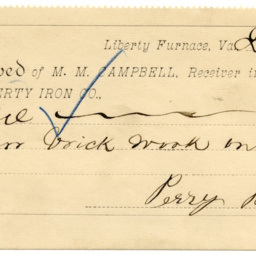 Liberty Furnace, Va.
ved of M. M. CAMPBELL, Receiver in
ERTY IRON CO.,
or brick work on
Perry